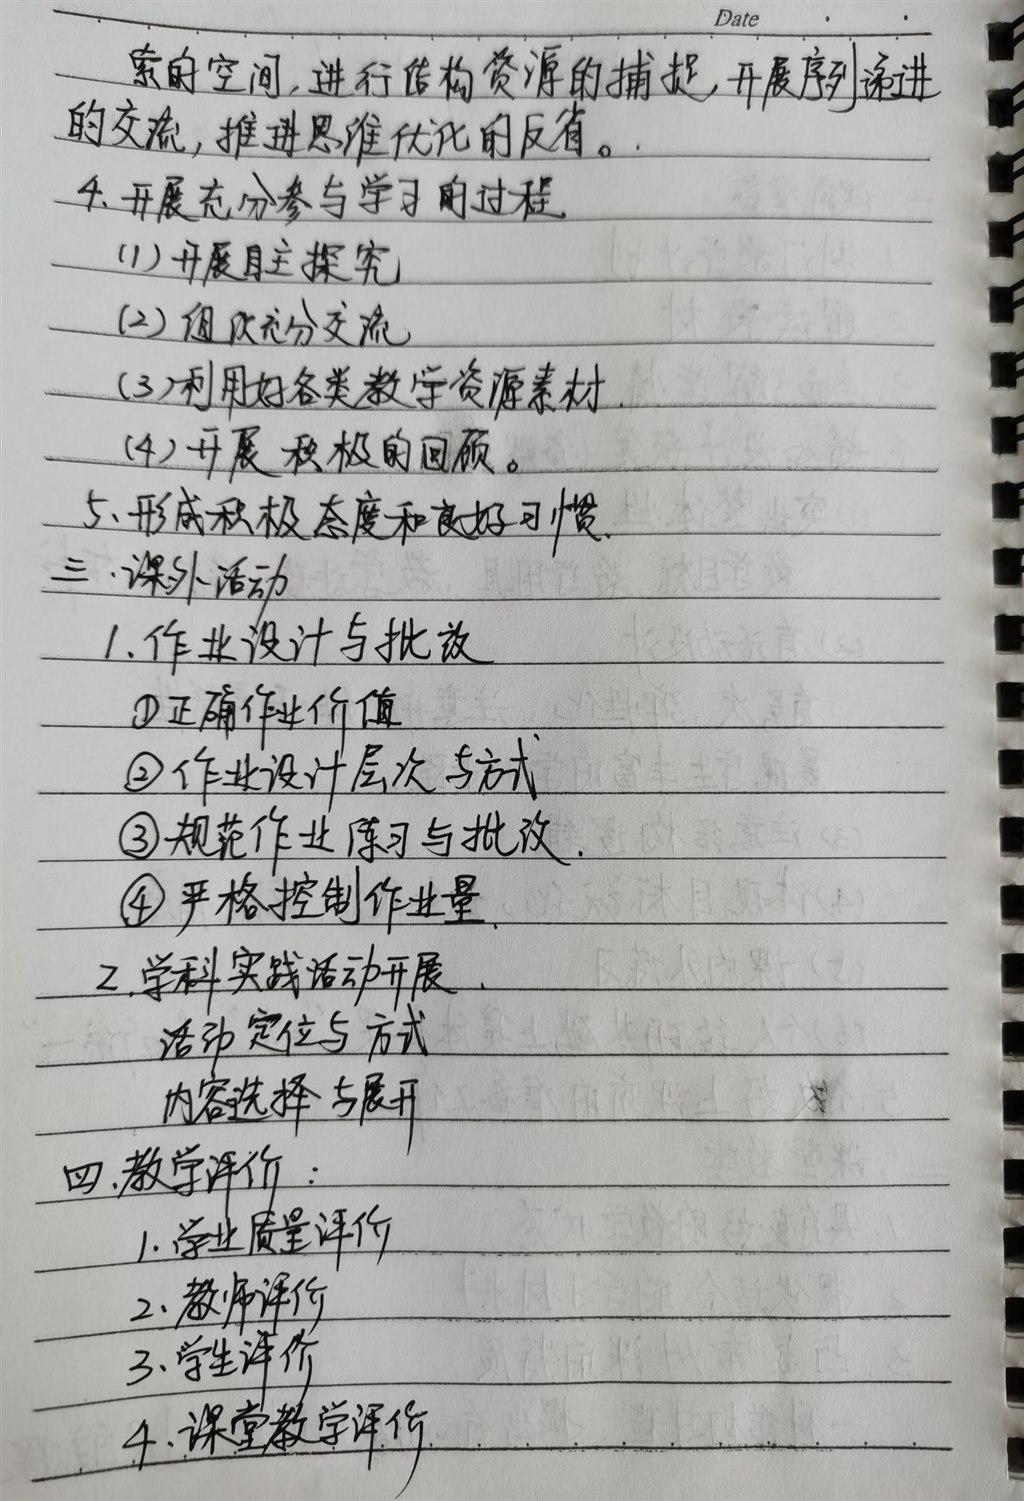 Date
索的空间,进行结构资源的捕捉,开展序列递进
的交流,推进思维优化的反省。
4.开展充分参与学习的过程
(1)开展自主探究
(2)组次充分交流
(3)利用好各类教学资源素材.
(4)开展积极的回顾。
5、形成积极态度和良好习惯.
三.课外活动
1.作业设计与批改
①正确作业价值
②作业设计层次与方式
③规范作业练习与批改.
④严格控制作业量.
2.学科实践活动开展.
活动定位与方式
内容选择与展开
四.教学评价:
1.学业质量评价
2、教师评价
3、学生评价
4.课堂教学评价